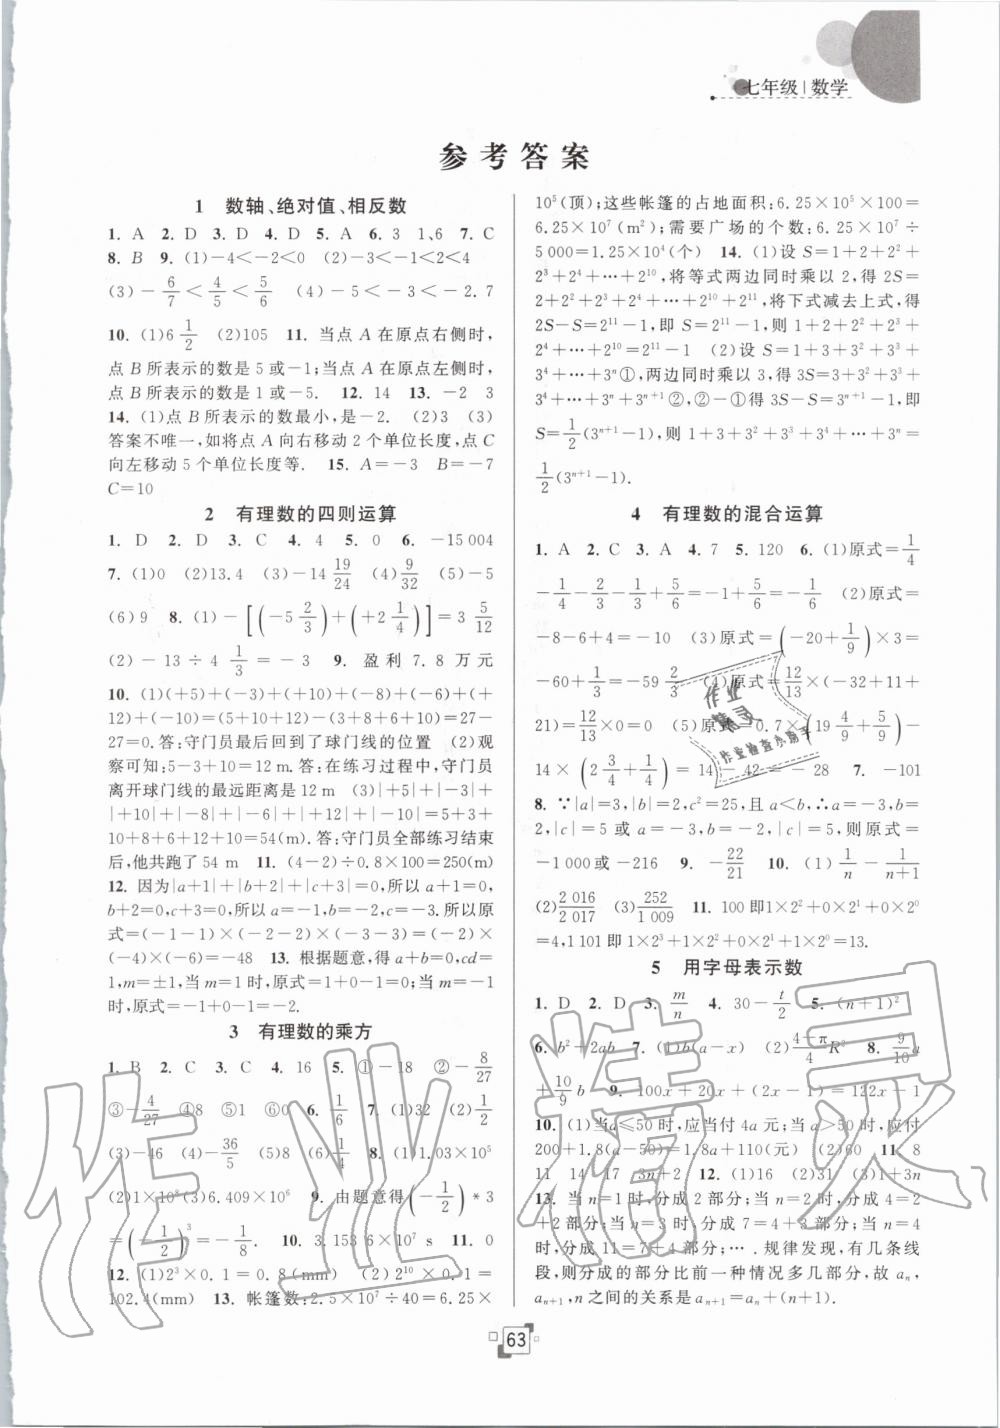 七年级 | 数学
参考答案
1 数轴、绝对值、相反数
1. A 2. D 3. D 4. D 5. A 6. 3 1、6 7. C
8. B 9. (1)-4<-2<0 (2)-2<2<4
(3)-6/7<4/5<5/6 (4)-5<-3<-2.7
10. (1)6 1/2 (2)105 11. 当点 A 在原点右侧时,
点 B 所表示的数是 5 或-1;当点 A 在原点左侧时,
点 B 所表示的数是 1 或-5. 12. 14 13. -2 3
14. (1)点 B 所表示的数最小,是-2. (2)3 (3)
答案不唯一,如将点 A 向右移动 2 个单位长度,点 C
向左移动 5 个单位长度等. 15. A=-3 B=-7
C=10
2 有理数的四则运算
1. D 2. D 3. C 4. 4 5. 0 6. -15 004
7. (1)0 (2)13.4 (3)-14 19/24 (4)9/32 (5)-5
(6)9 8. (1)-[(-5 2/3)+(+2 1/4)]=3 5/12
(2)-13÷4 1/3=-3 9. 盈利 7.8 万元
10. (1)(+5)+(-3)+(+10)+(-8)+(-6)+(+
12)+(-10)=(5+10+12)-(3+8+6+10)=27-
27=0.答:守门员最后回到了球门线的位置 (2)观
察可知:5-3+10=12 m.答:在练习过程中,守门员
离开球门线的最远距离是12 m (3)|+5|+|-3|+
|+10|+|-8|+|-6|+|+12|+|-10|=5+3+
10+8+6+12+10=54(m).答:守门员全部练习结束
后,他共跑了 54 m 11. (4-2)÷0.8×100=250(m)
12. 因为|a+1|+|b+2|+|c+3|=0,所以 a+1=0,
b+2=0,c+3=0,所以 a=-1,b=-2,c=-3.所以原
式=(-1-1)×(-2-2)×(-3-3)=(-2)×
(-4)×(-6)=-48 13. 根据题意,得 a+b=0,cd=
1,m=±1,当 m=1时,原式=1+0-1=0,当 m=-1
时,原式=-1+0-1=-2.
3 有理数的乘方
1. B 2. C 3. C 4. 16 5. ①-18 ②-8/27
③-4/27 ④8 ⑤1 ⑥0 6. 1/6 7. (1)32 (2)1/2
(3)-46 (4)-36/5 (5)8 (6)1/4 8. (1)1.03×10⁵
(2)1×10⁸(3)6.409×10⁶ 9. 由题意得(-1/2)*3
=(-1/2)³=-1/8. 10. 3.153 6×10⁷ s 11. 0
12. (1)2³×0.1=0.8(mm) (2)2¹⁰×0.1=
102.4(mm) 13. 帐篷数:2.5×10⁷÷40=6.25×
10⁵(顶);这些帐篷的占地面积:6.25×10⁵×100=
6.25×10⁷(m²);需要广场的个数:6.25×10⁷÷
5 000=1.25×10⁴(个) 14. (1)设 S=1+2+2²+
2³+2⁴+…+2¹⁰,将等式两边同时乘以 2,得 2S=
2+2²+2³+2⁴+…+2¹⁰+2¹¹,将下式减去上式,得
2S-S=2¹¹-1,即 S=2¹¹-1,则 1+2+2²+2³+
2⁴+…+2¹⁰=2¹¹-1 (2)设 S=1+3+3²+3³+
3⁴+…+3ⁿ①,两边同时乘以 3,得 3S=3+3²+3³+
3⁴+…+3ⁿ+3ⁿ⁺¹②,②-①得 3S-S=3ⁿ⁺¹-1,即
S=1/2(3ⁿ⁺¹-1),则 1+3+3²+3³+3⁴+…+3ⁿ=
1/2(3ⁿ⁺¹-1).
4 有理数的混合运算
1. A 2. C 3. A 4. 7 5. 120 6. (1)原式=1/4
-1/4-2/3-1/3+5/6=-1+5/6=-1/6 (2)原式=
-8-6+4=-10 (3)原式=(-20+1/9)×3=
-60+1/3=-59 2/3 (4)原式=12/13×(-32+11+
21)=12/13×0=0 (5)原式=0.7×(19 4/9+5/9)-
14×(2 3/4+1/4)=14-42=-28 7. -101
8. ∵|a|=3,|b|=2,c²=25,且 a<b,∴a=-3,b=
2,|c|=5 或 a=-3,b=-2,|c|=5,则原式=
-1 000或-216 9. -22/21 10. (1)1/n-1/(n+1)
(2)2 016/2 017 (3)252/1 009 11. 100 即1×2²+0×2¹+0×2⁰
=4,1 101 即 1×2³+1×2²+0×2¹+1×2⁰=13.
5 用字母表示数
1. D 2. D 3. m/n 4. 30-t/2 5. (n+1)²
6. b²+2ab 7. (1)b(a-x) (2)(4-π)/4 R² 8. 9/10 a
+10/9 b 9. 100x+20x+(2x-1)=122x-1
10. (1)当a≤50时,应当付 4a 元;当 a>50时,应付
200+1.8(a-50)=1.8a+110(元) (2)60 11. 8
11 14 17 3n+2 12. (1)16 (2)31 (3)1+3n
13. 当 n=1时,分成 2 部分;当 n=2时,分成 4=2
+2部分;当 n=3时,分成 7=4+3部分;当 n=4
时,分成 11=7+4 部分;…. 规律发现,有几条线
段,则分成的部分比前一种情况多几部分,故 aₙ,
aₙ₊₁,n 之间的关系是 aₙ₊₁=aₙ+(n+1).
63
作业精灵
作业
精灵
作业检查小助手